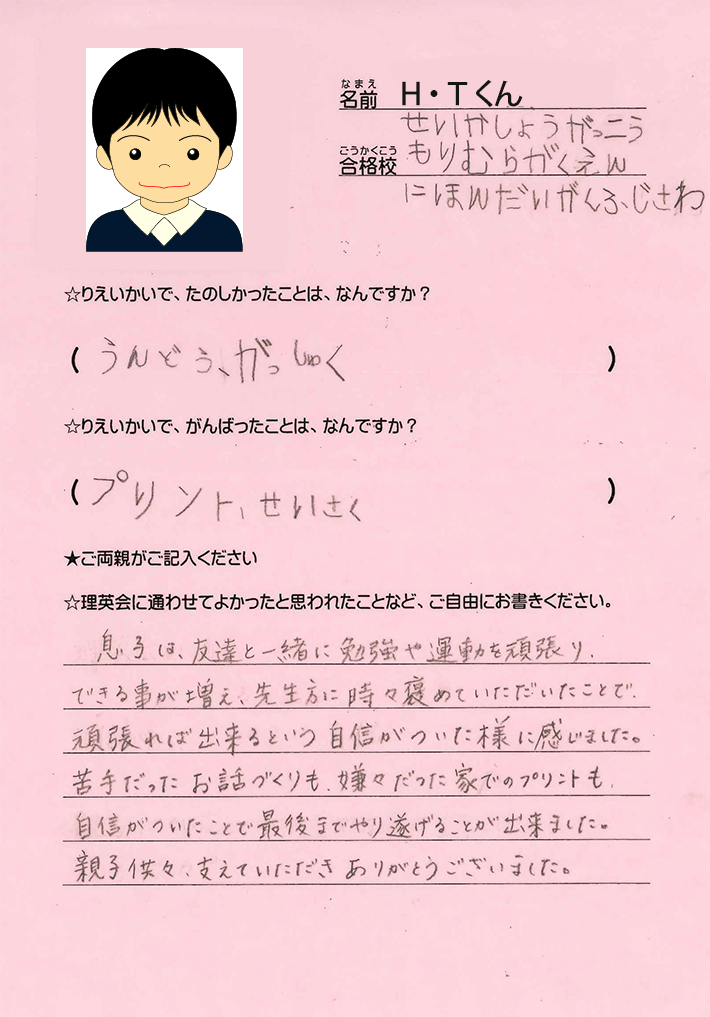 なまえ
名前 H・Tくん
せいかしょうがっこう
ごうかくこう
合格校 もりむらがくえん
にほんだいがくふじさわ
☆りえいかいで、たのしかったことは、なんですか？
( うんどう、がっしゅく )
☆りえいかいで、がんばったことは、なんですか？
( プリント、せいさく )
★ご両親がご記入ください
☆理英会に通わせてよかったと思われたことなど、ご自由にお書きください。
息子は、友達と一緒に勉強や運動を頑張り、
できる事が増え、先生方に時々褒めていただいたことで、
頑張れば出来るという自信がついた様に感じました。
苦手だったお話づくりも、嫌々だった家でのプリントも、
自信がついたことで最後までやり遂げることが出来ました。
親子供々、支えていただきありがとうございました。